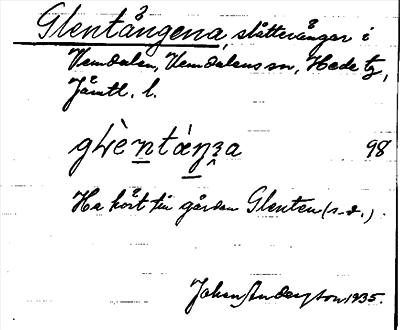 Glentångena, slåtterängar i
Vemdalen, Vemdalens sn, Hede tg,
Jämtl. l.
98
Ha hört till gården Glenten (s.d.).
Johan Anderson 1935.